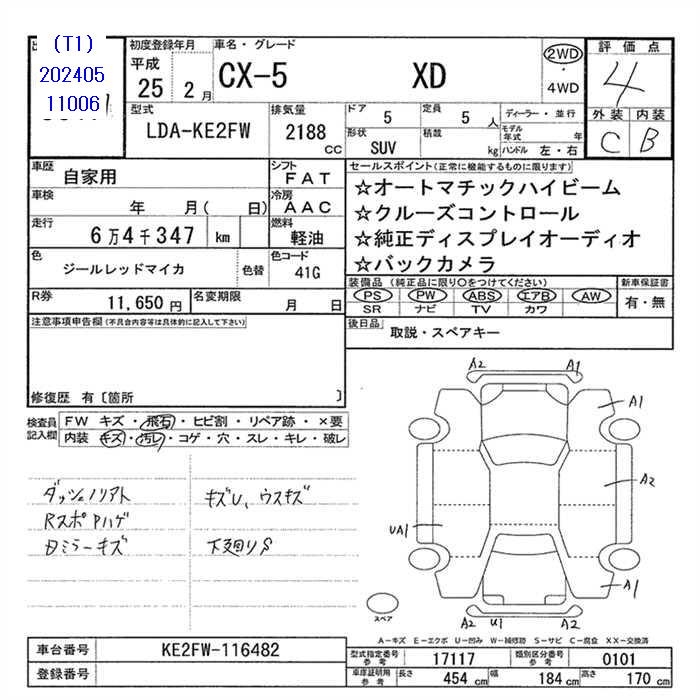 (T1)
202405
11006
初度登録年月
平成
25 2月
車名・グレード
CX-5 XD
2WD
・
4WD
評価点
4
外装 内装
C B
型式
LDA-KE2FW
排気量
2188 cc
ドア
5
定員
5 人
形状
SUV
積載
kg
ディーラー・並行
モデル年式 年
ハンドル 左・右
車歴
自家用
シフト
FAT
車検
年 月( 日)
冷房
AAC
走行
6万4千347 km
燃料
軽油
色
ジールレッドマイカ
色替
色コード
41G
R券
11,650円
名変期限
月 日
セールスポイント(正常に機能するものに限ります)
☆オートマチックハイビーム
☆クルーズコントロール
☆純正ディスプレイオーディオ
☆バックカメラ
装備品 (純正品に限り〇をつけてください)
PS PW ABS エアB AW
SR ナビ TV カワ
新車保証書
有・無
後日品
取説・スペアキー
注意事項申告欄(不具合内容等は具体的に記入して下さい)
修復歴 有〔箇所 〕
検査員記入欄
FW キズ・飛石・ヒビ割・リペア跡・×要
内装 キズ・汚レ・コゲ・穴・スレ・キレ・破レ
ダッシュノリアト
キズU、ウスキズ
RスポPハゲ
日ミラーキズ
下廻りS
A2 A1
A1
A2
UA1
A1
A2 U1 A2
スペア
A-キズ E-エクボ U-凹み W-補修跡 S-サビ C-腐食 XX-交換済
車台番号
KE2FW-116482
登録番号
型式指定番号 参考
17117
類別区分番号 参考
0101
車庫証明用 参考
長さ 454 cm
幅 184 cm
高さ 170 cm